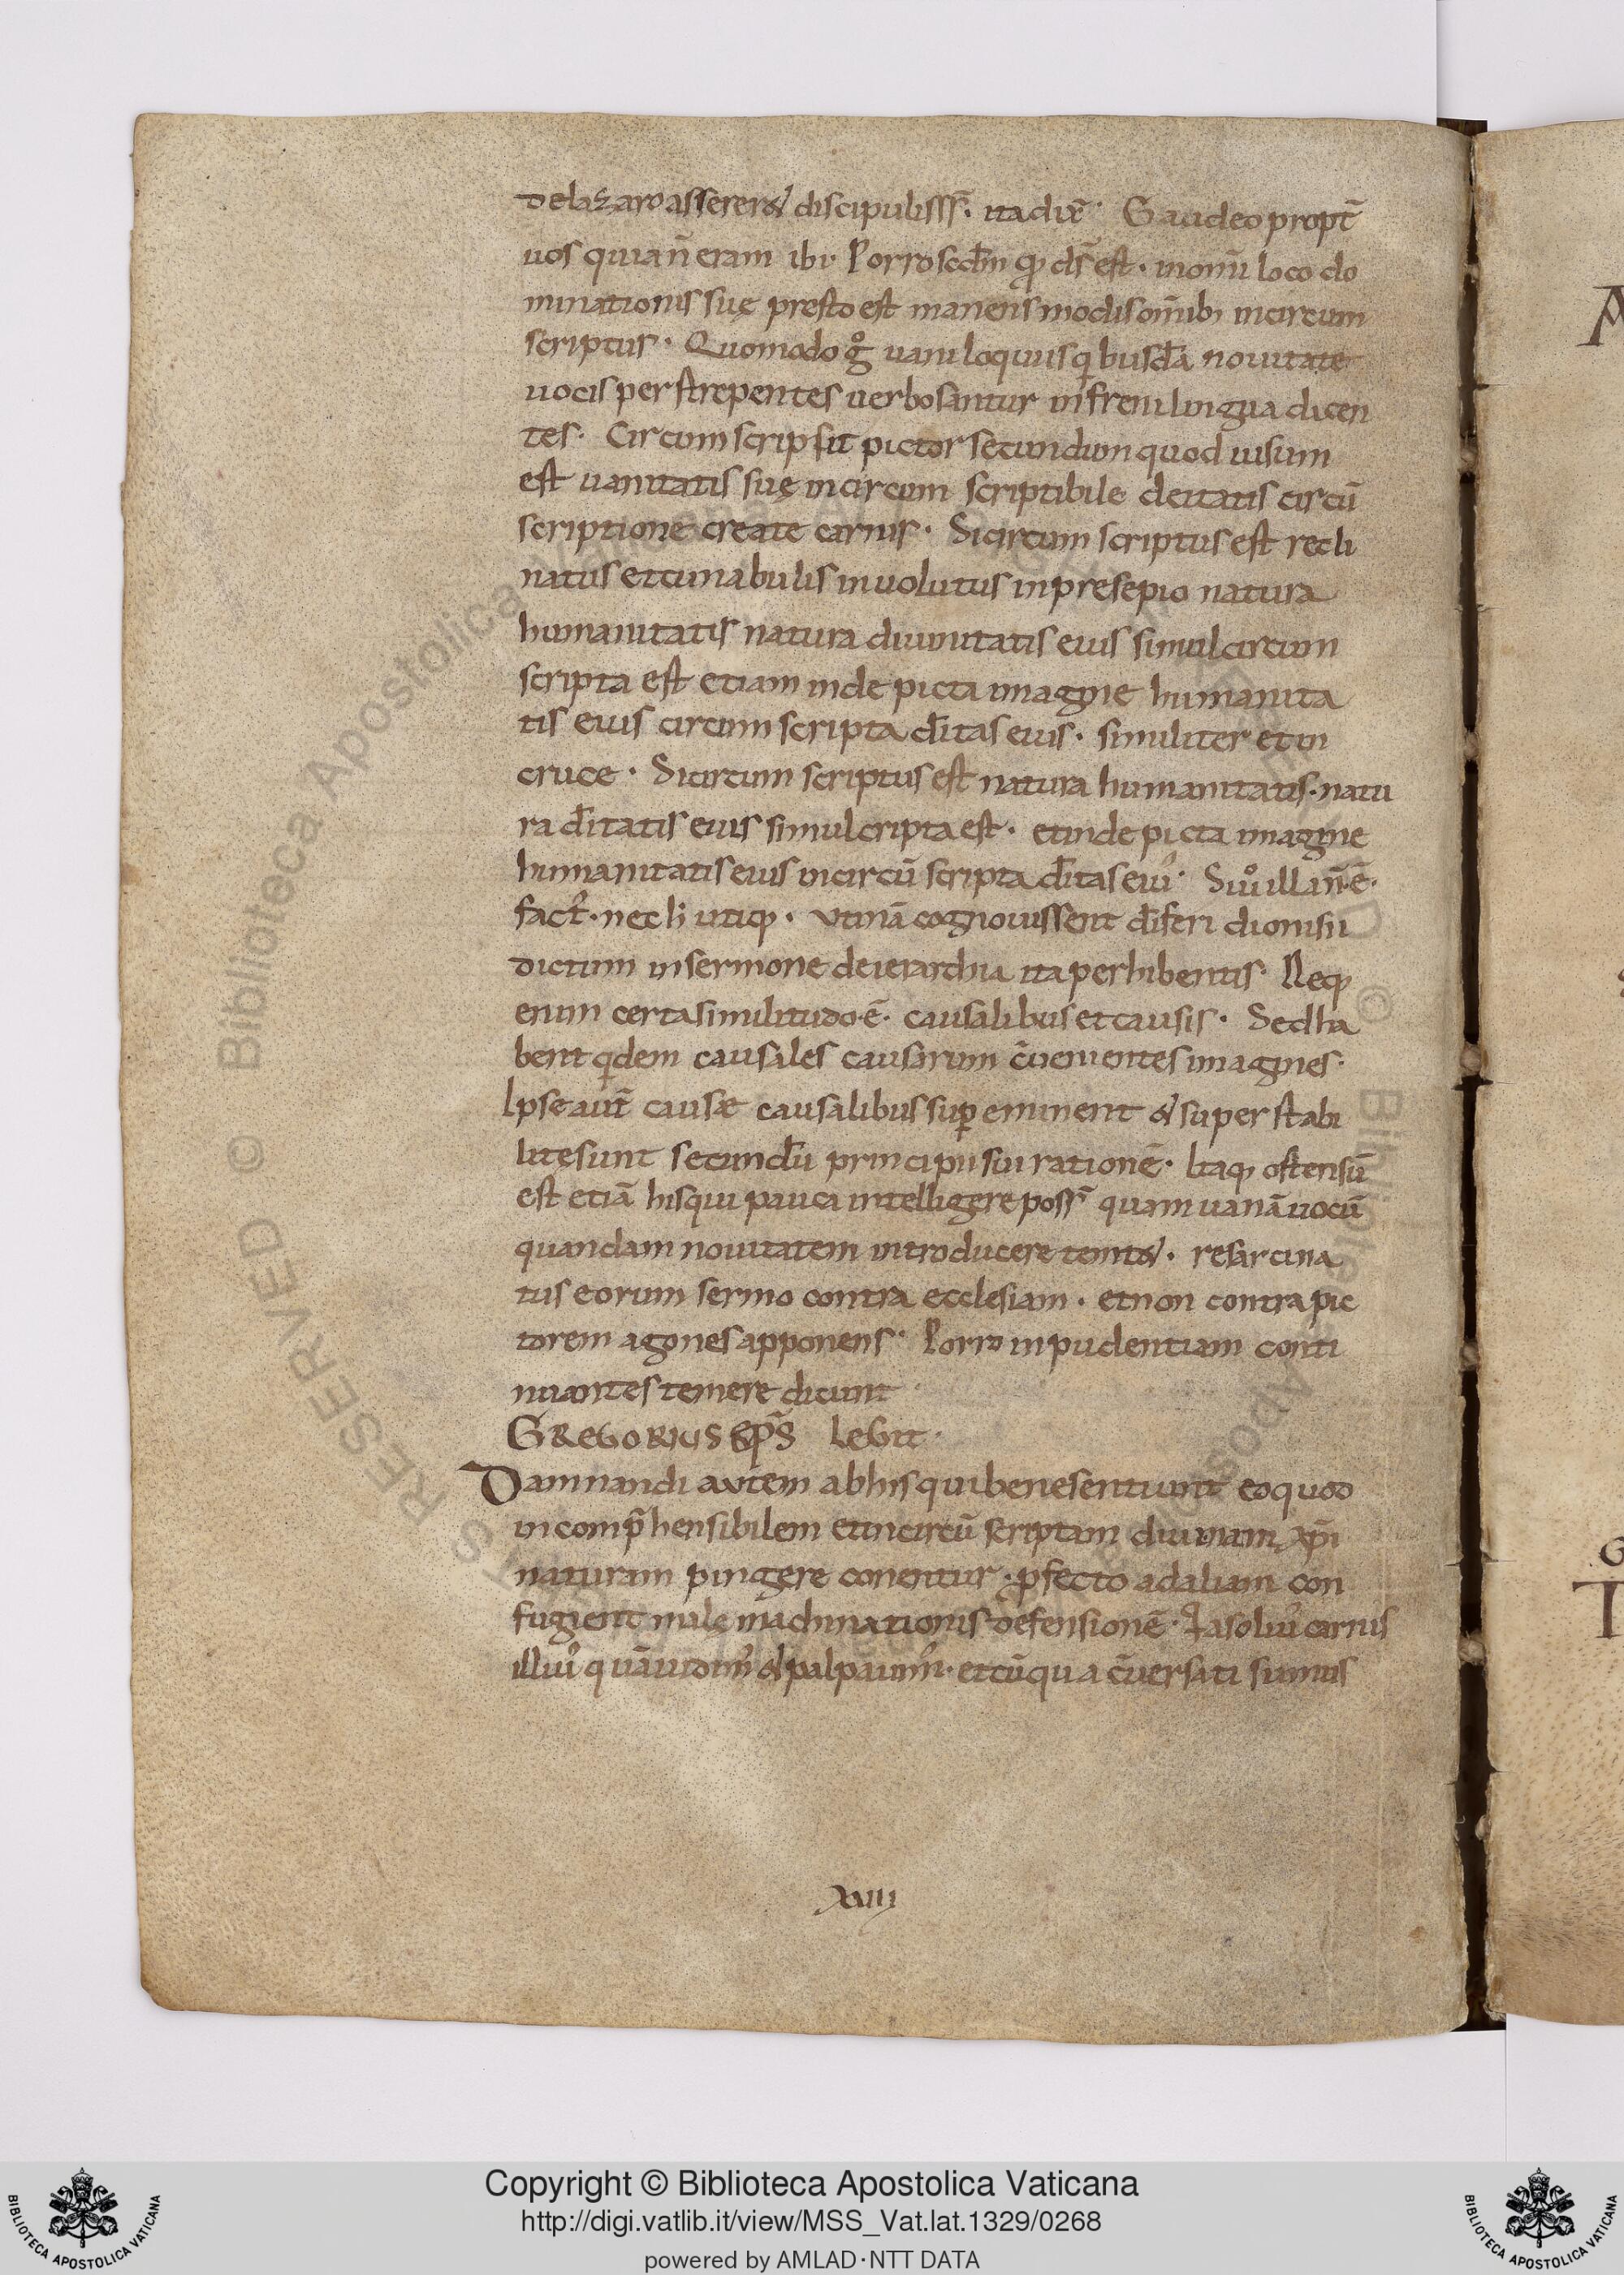 de lazaro asserer& discipulis ss̄. ita dix̄. Gaudeo propt̄
uos quia n̄ eram ibi. Porro secdm̄ qđ ds̄ est. in om̄i loco do
minationis suę presto est manens modis om̄ib; incircum
scriptus. Quomodo g° uaniloquiis quibusdā nouitate
uocis perstrepentes uerbosantur infreni lingua dicen
tes. Circumscripsit pictor secundum quod uisum
est uanitatis suę incircumscriptibile deitatis circū
scriptione create carnis. Si circumscriptus est recli
natus et cunabulis inuolutus in presepio natura
humanitatis natura diuinitatis eius simul circum
scripta est etiam inde picta imagine humanita
tis eius circumscripta d̄itas eius. similiter et in
cruce. Si circumscriptus est natura humanitatis. natu
ra d̄itatis eius simul cripta est. et inde picta imagine
humanitatis eius incircū scripta d̄itas eiu'. Si u° illa n̄ ē.
fact'. nec h utiq;. Utinā cognouissent d̄iferi dionisii
dictum in sermone de ierarchia ita perhibentis. Neq;
enim certa similitudo ē. causalibus et causis. Sed ha
bent qidem causales causarum c̄uenientes imagines.
Ipse aut̄ causæ causalibus sup eminent & superstabi
litę sunt secundū principii sui rationē. Itaq; ostensū
est etiā his qui pauca intelligere poss̄ quam uanā uocū
quandam nouitatem introducere temt&. resarcina
tus eorum sermo contra ecclesiam. et non contra pic
torem agones apponens. Porro inpudentiam conti
nuantes temere dicunt
GREGORIUS EP̄S LEGIT.
Damnandi autem ab his qui bene sentiunt eo quod
incomp̄hensibilem et incircū scriptam diuinam xp̄i
naturam pingere conentur. pfecto ad aliam con
fugient malę machinationis defensionē. Ia soliu' carnis
illiu' quā uidim' & palpauim'. et cū qua c̄uersati sumus
xviiii
Copyright © Biblioteca Apostolica Vaticana
http://digi.vatlib.it/view/MSS_Vat.lat.1329/0268
powered by AMLAD·NTT DATA
BIBLIOTECA APOSTOLICA VATICANA
BIBLIOTECA APOSTOLICA VATICANA